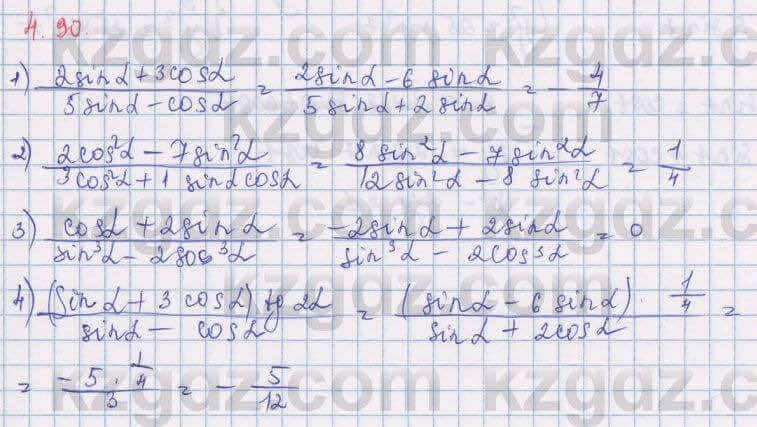 4.90.
1) (2sinα + 3cosα)/(5sinα − cosα) = (2sinα − 6 sinα)/(5 sinα + 2 sinα) = − 4/7
2) (2cos²α − 7sin²α)/(3cos²α + 1 sinα cosα) = (8 sin²α − 7 sin²α)/(12sin²α − 8 sin²α) = 1/4
3) (cosα + 2sinα)/(sin³α − 2soc³α) = (−2sinα + 2sinα)/(sin³α − 2cos³α) = 0
4) (sinα + 3 cosα) tg 2α/(sinα − cosα) = (sinα − 6 sinα) · 1/4/(sinα + 2cosα) =
= (−5 · 1/4)/3 = − 5/12
kzgdz.com